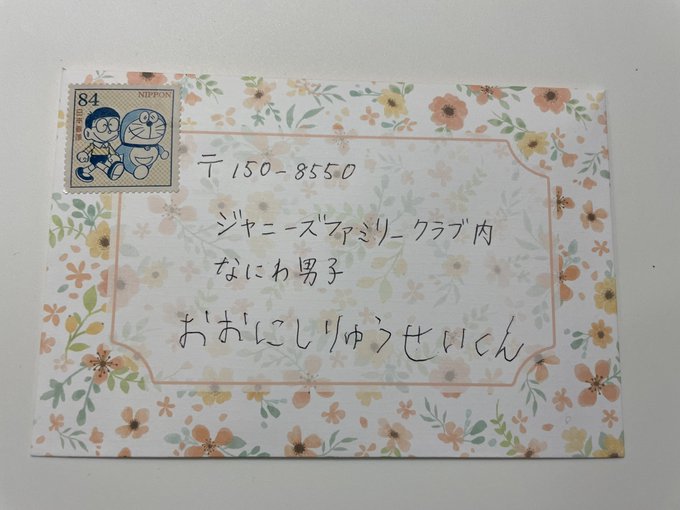 84
NIPPON
日本郵便
〒150-8550
ジャニーズファミリークラブ内
なにわ男子
おおにしりゅうせいくん